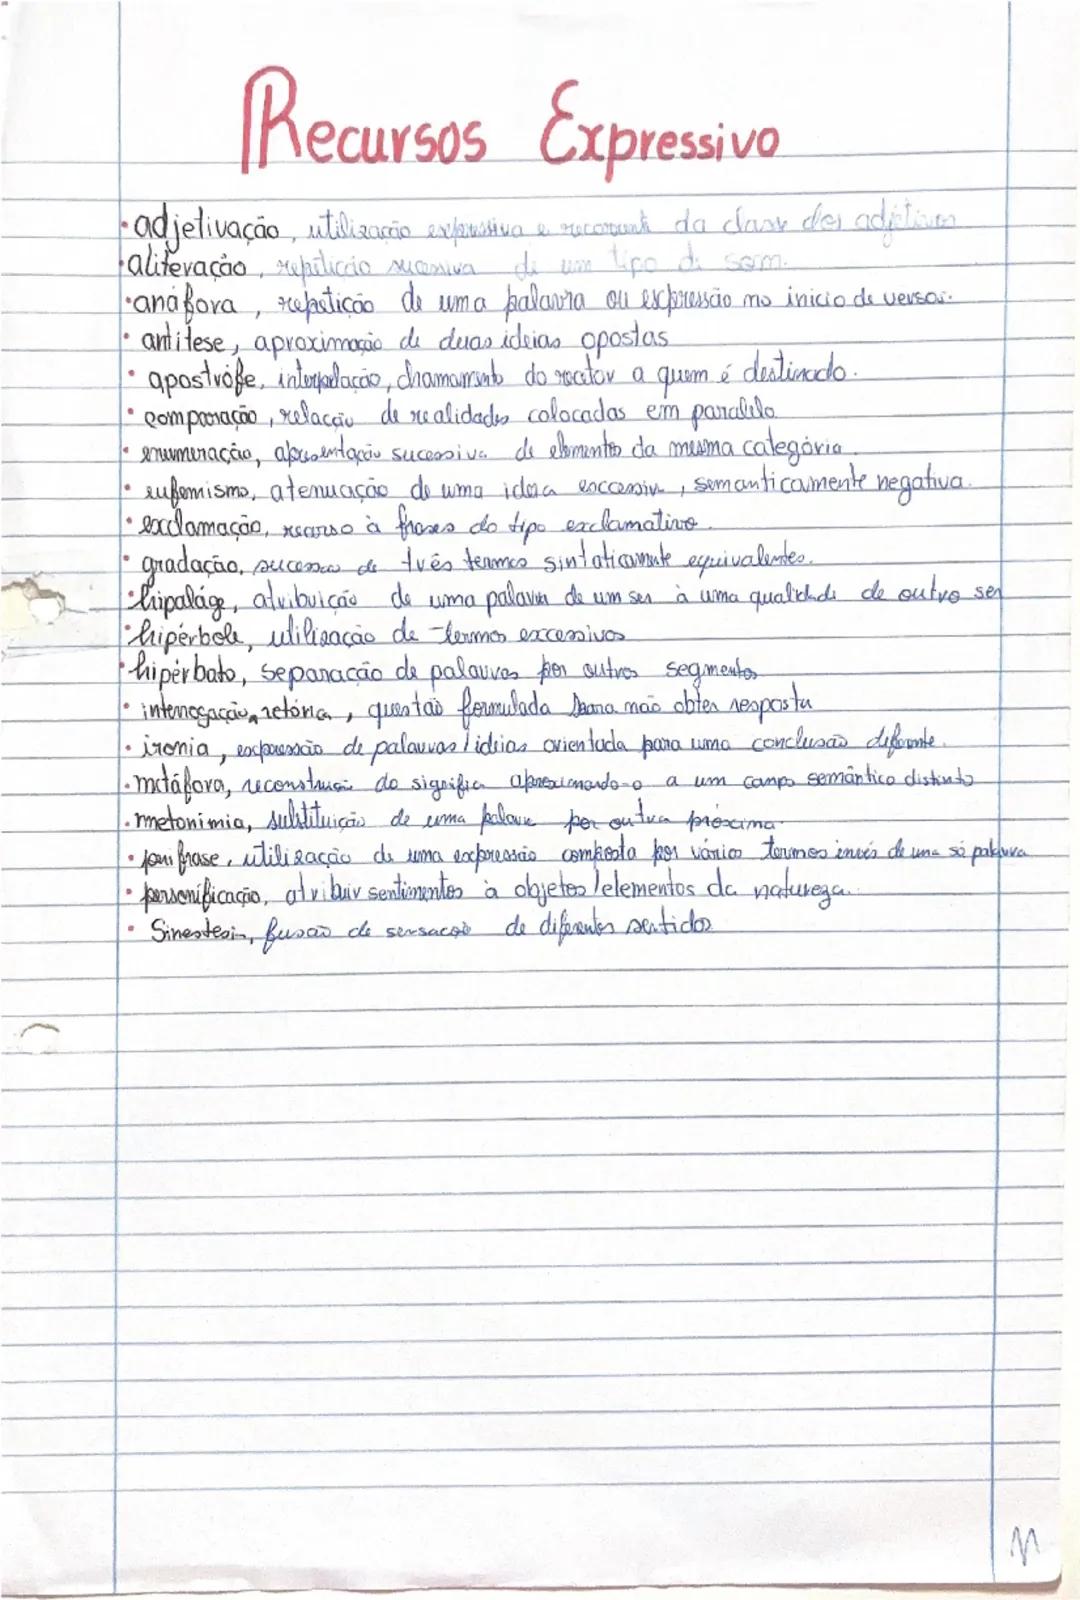 Recursos Expressivo
• adjetivação, utilização expressiva e recorrente da classe dos adjetivos
• aliteração, repetição sucessiva de um tipo de som.
• anáfora, repetição de uma palavra ou expressão no início de versos.
• antítese, aproximação de duas ideias opostas
• apostrófe, interpelação, chamamento do recetor a quem é destinado.
• comparação, relação de realidades colocadas em paralelo
• enumeração, apresentação sucessiva de elementos da mesma categória.
• eufemismo, atenuação de uma ideia excessiva, semanticamente negativa.
• exclamação, recurso à frases do tipo exclamativo.
• gradação, sucessão de três termos sintaticamente equivalentes.
• hipaláge, atribuição de uma palavra de um ser à uma qualidade de outro ser
• hipérbole, utilização de termos excessivos
• hipérbato, separação de palavras por outros segmentos
• interrogação retórica, questão formulada para não obter resposta
• ironia, expressão de palavras / ideias orientada para uma conclusão diferente.
• metáfora, reconstrução do significa aproximando-o a um campo semântico distinto
• metonimia, substituição de uma palavra por outra próxima
• perifrase, utilização de uma expressão composta por vários termos invés de uma só palavra
• personificação, atribuir sentimentos à objetos / elementos da natureza.
• Sinestesia, fusão de sensação de diferentes sentidos